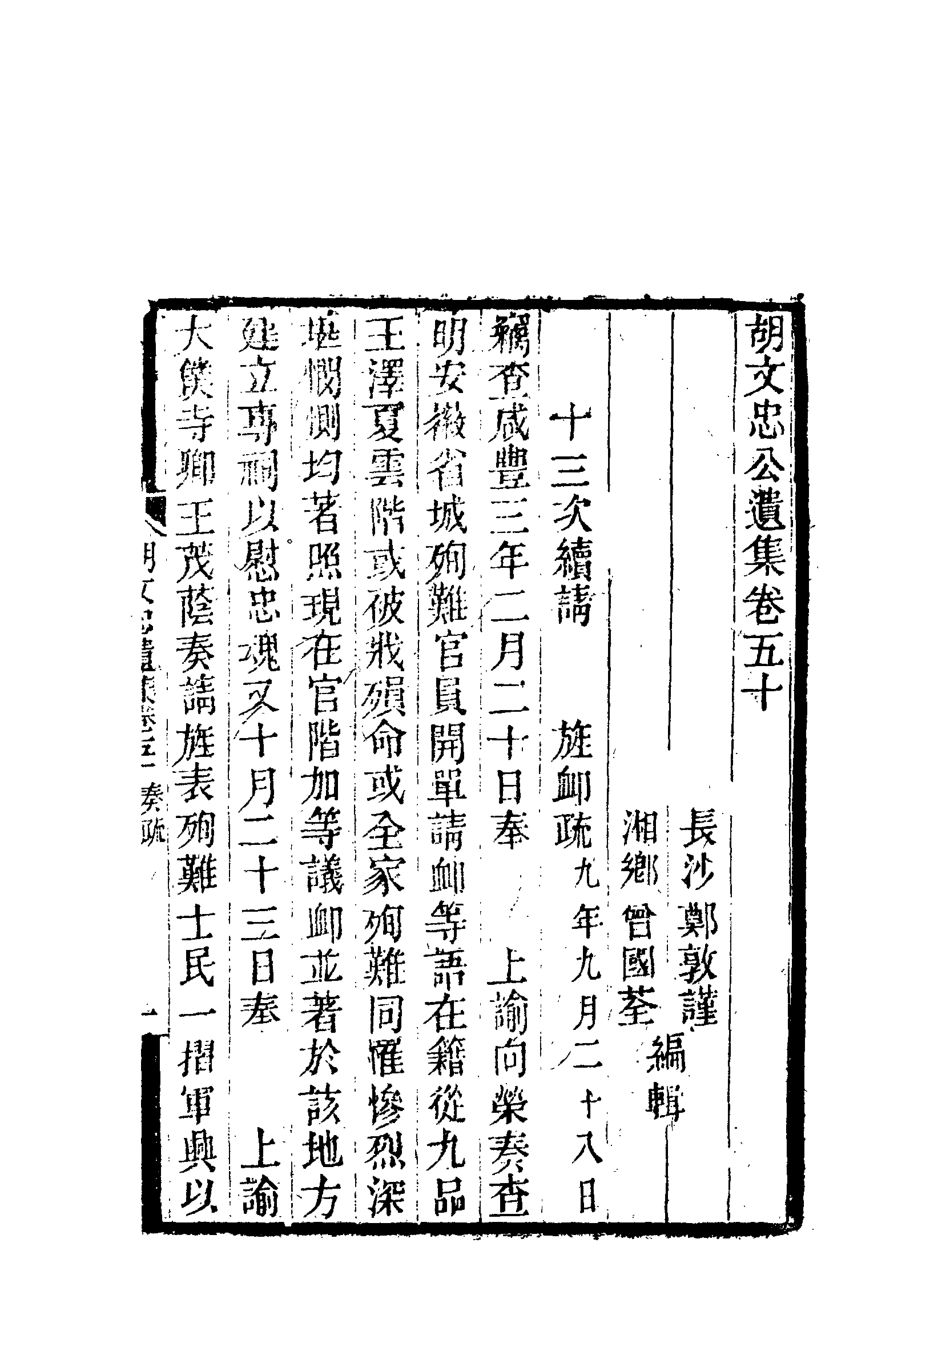 胡文忠公遺集卷五十
長沙鄭敦謹
湘鄉曾國荃
編輯
十三次續請　旌卹疏九年九月二十八日
竊查咸豐三年二月二十日奉　上諭向榮奏查
明安徽省城殉難官員開單請卹等語在籍從九品
王澤夏雲階或被戕殞命或全家殉難同罹慘烈深
堪憫惻均著照現在官階加等議卹並著於該地方
建立專祠以慰忠魂又十月二十三日奉　上諭
大僕寺卿王茂蔭奏請旌表殉難士民一摺軍興以
胡文忠遺集卷五十　奏疏　一